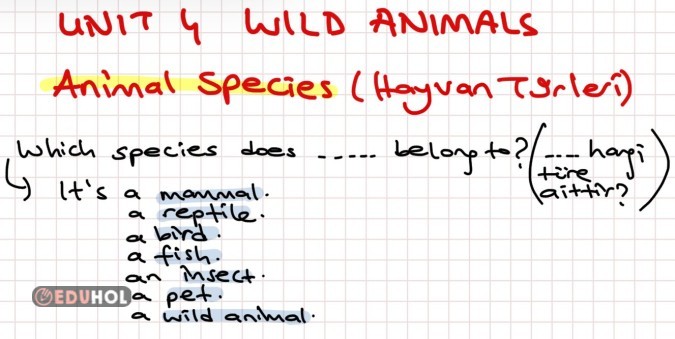 UNIT 4 WILD ANIMALS
Animal Species (Hayvan Türleri)
Which species does ..... belong to? (.... hangi
türe
aittir?)
It's a mammal.
a reptile.
a bird.
a fish.
an insect.
EDUHOL
a pet.
a wild animal.